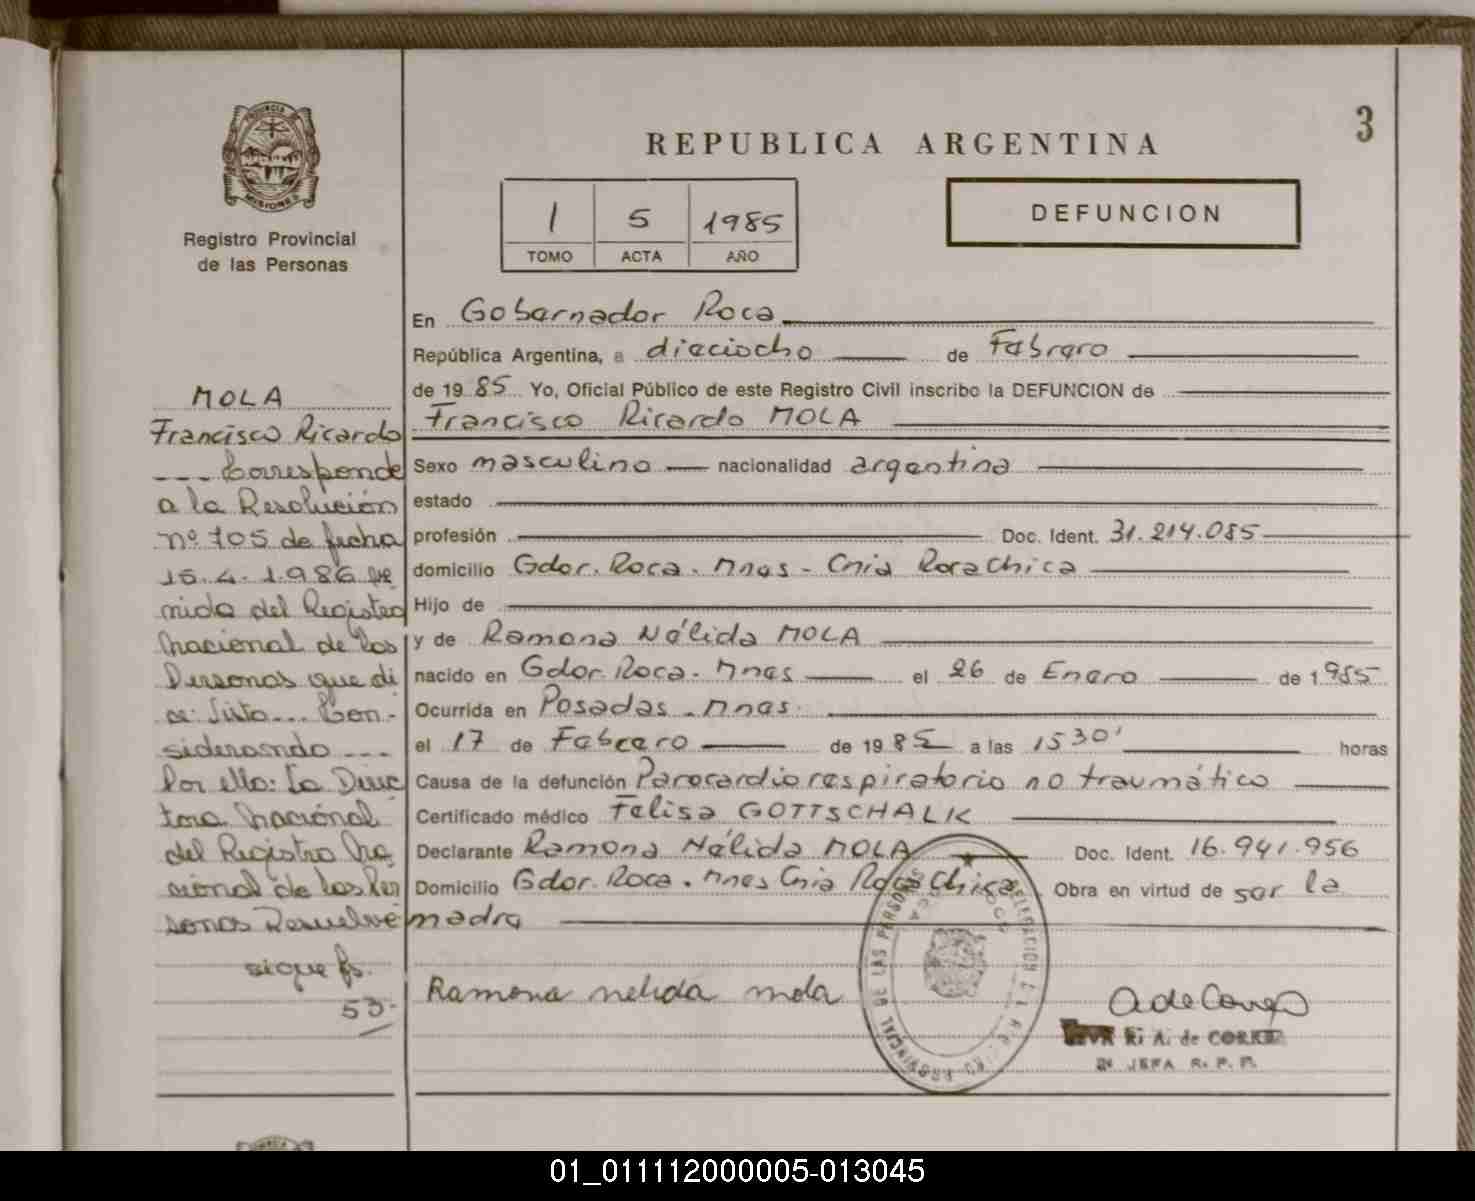 3
REPUBLICA ARGENTINA
PROVINCIA DE
MISIONES
Registro Provincial
de las Personas
1 5 1985
TOMO ACTA AÑO
DEFUNCION
En Gobernador Roca
República Argentina, a dieciocho de Febrero
de 19 85 Yo, Oficial Público de este Registro Civil inscribo la DEFUNCION de
Francisco Ricardo MOLA
Sexo masculino nacionalidad argentina
estado
profesión Doc. Ident. 31.214.085
domicilio Gdor. Roca. Mnes - Cnia Roca Chica
Hijo de
y de Ramona Nélida MOLA
nacido en Gdor. Roca. Mnes el 26 de Enero de 1985
Ocurrida en Posadas. Mnes.
el 17 de Febrero de 19 85 a las 15 30' horas
Causa de la defunción Parocardiorespiratorio no traumático
Certificado médico Felisa GOTTSCHALK
Declarante Ramona Nélida MOLA Doc. Ident. 16.941.956
Domicilio Gdor. Roca. Mnes Cnia Roca Chica Obra en virtud de ser la
madre
Ramona nelida mola
MOLA
Francisco Ricardo
--- Corresponde
a la Resolución
nº 705 de fecha
15.4.1.986 re
nida del Registro
Nacional de las
Personas que di
ce: Visto... Con-
siderando ---
Por ello: La Direc
tora Nacional
del Registro Na
cional de las Per
sonas Resuelve
sigue fs.
53-
A. de CORREA
JEFA R. P. P.
PROVINCIAL DE LAS PERSONAS
DELEGACION
01_011112000005-013045